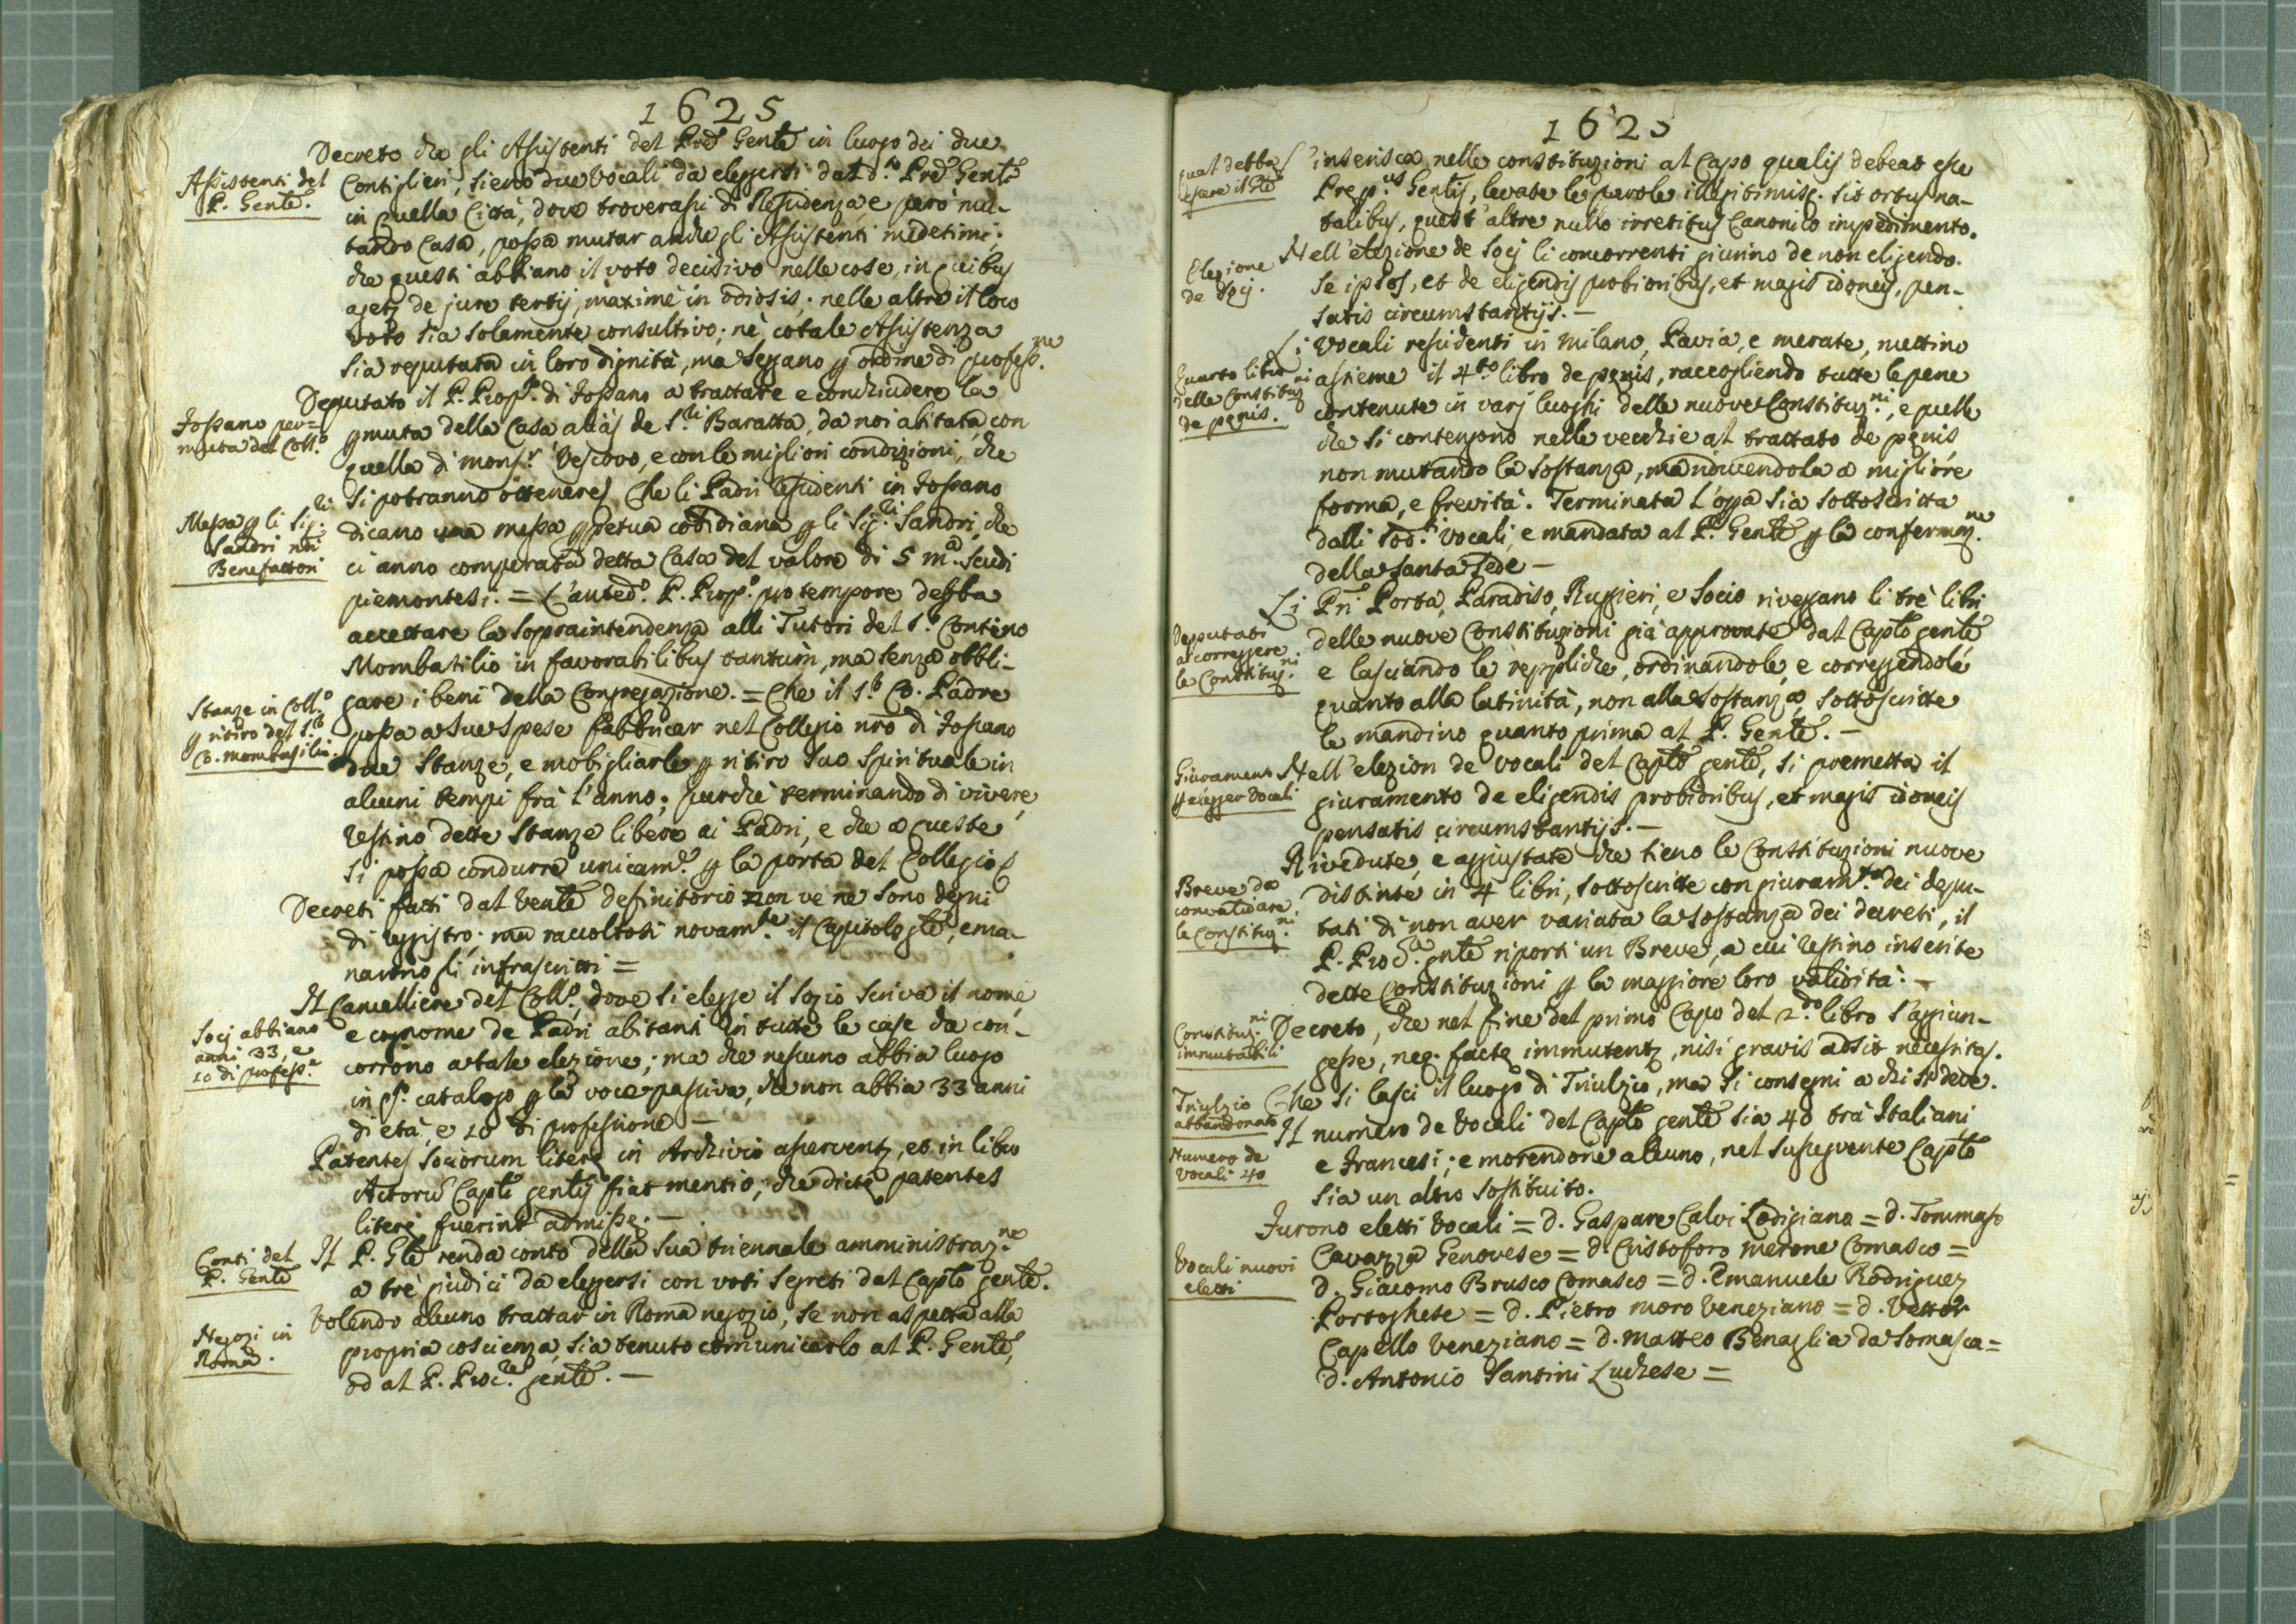 1625
Decreto che gli Assistenti del Pre Gente in luogo dei due
Assistenti del
P. Gente.
Consiglieri, sieno due Vocali da eleggersi dal d.o Pre Gente
in quella Città, dove troverassi di Residenza, e però mu-
tando Casa, possa mutar anche gli Assistenti medesimi;
che questi abbiano il voto decisivo nelle cose, in quibus
agetz de jure tertij, maximè in odiosis; nelle altre il loro
voto sia solamente consultivo; nè cotale Assistenza
sia reputata in loro dignità, ma seggano p ordine di profess.ne
Deputato il P. Prop.to di Fossano a trattare e conchiudere la
Fossano per=
muta del Coll.o
pmuta della Casa aliàs de S.ri Baratta, da noi abitata, con
quella di mons.r Vescovo, e con le migliori condizioni, che
si potranno ottenere. Che li Padri residenti in Fossano
Messa p li Sig.ri
Sandri nri
Benefattori
dicano una messa ppetua cotidiana p li Sig.ri Sandri, che
ci anno comperata detta Casa del valore di 5 m.a scudi
piemontesi. = L'anted.o P. Prop.o pro tempore debba
accettare la sopraintendenza alli Tutori del S.r Contino
Mombasilio in favorabilibus tantùm, ma senza obbli-
gare i beni della Congregazione. = Che il S.r Co. Padre
Stanze in Coll.o
p ritiro del S.r
Co. Mombasilio.
possa a sue spese fabbricar nel Collegio nro di Fossano
due Stanze, e mobigliarle p ritiro suo spirituale in
alcuni tempi frà l'anno; purchè terminando di vivere,
restino dette Stanze libere ai Padri, e che a queste
si possa condurre unicam.e p la porta del Collegio
Decreti fatti dal Vente definitorio non ve ne sono degni
di registro; ma raccoltosi novam.te il Capitolo gle, ema-
narono gli infrascritti =
Il Cancelliere del Coll.o, dove si elegge il Sozio scriva il nome
Socj abbiano
anni 33, e
10 di profess.e
e cognome de Padri abitanti in tutte le case che con-
corrono a tale elezione; ma che nessuno abbia luogo
in qs.o catalogo p la voce passiva, che non abbia 33 anni
di età, e 10 di professione —
Patentes Sociorum literę in Archivio asserventz, et in libro
Actorũ Caplī gentis fiat mentio; che dictę patentes
literę fuerint admissę. —
Conti del
P. Gente
Il P. Gle renda conto della sua triennale amministraz.ne
a trè giudici da eleggersi con voti segreti dal Caplo gente.
Negozi in
Roma.
Volendo alcuno trattar in Roma negozio, se non aspetta alla
propria coscienza, sia tenuto comunicarlo al P. Gente,
od al P. Proc.re gente. —
1625
qual debba
essere il Gle
S'inserisca nelle constituzioni al Capo qualis debeat esse
Prep.us Gentis, levate le parole illegitimisq. sit ortus na-
talibus, quest'altre nullo irretitus Canonico impedimento.
Elezione
de Socj.
Nell'elezione de Socj li concorrenti giurino de non eligendo
se ipsos, et de eligendis probioribus, et magis idoneis, pen-
satis circumstantijs. —
Li Vocali residenti in Milano, Pavia, e Merate, mettino
Quarto libro
delle Constituz.ni
de pęnis.
assieme il 4.to libro de pęnis, raccogliendo tutte le pene
contenute in varj luoghi delle nuove Constituz.ni, e quelle
che si contengono nelle vecchie al trattato de pęnis
non mutando la sostanza, ma riducendola a migliore
forma, e brevità. Terminata l'oppa sia sottoscritta
dalli sod.ti Vocali, e mandata al P. Gente p la confermaz.ne
della Santa Sede —
Li Pri Porta, Paradiso, Ruggieri, e Socio riveggano li trè libri
Deputati
a correggere
le Constituz.ni
delle nuove Constituzioni già approvate dal Caplo gente
e lasciando le reppliche, ordinandole, e correggendole
quanto alla latinità, non alla sostanza, sottoscritte
le mandino quanto prima al P. Gente. —
Giuramento
p elegger Vocali
Nell'elezion de Vocali del Caplo gente, si premetta il
giuramento de eligendis probioribus, et magis idoneis
pensatis circumstantijs. —
Rivedute, e aggiustate che sieno le Constituzioni nuove
Breve da
convalidare
le Constituz.ni
distinte in 4 libri, sottoscritte con giuram.to dei depu-
tati di non aver variata la sostanza dei decreti, il
P. Proc.re gnle riporti un Breve, a cui restino inserite
dette Constituzioni p la maggiore loro validità. —
Constituz.ni
immutabili
Decreto, che nel fine del primo Capo del 2.do libro s'aggiun-
gesse, neq. factę immutentz, nisi gravis adsit necessitas.
Triulzio
abbandonato
Che si lasci il luogo di Triulzio, ma si consegni a chi si deve.
Numero de
Vocali 40
Il numero de Vocali del Caplo gente sia 40 trà Italiani
e Francesi; e morendone alcuno, nel susseguente Caplo
sia un altro sostituito.
Vocali nuovi
eletti
Furono eletti Vocali = d. Gaspare Calvi Lodigiano = d. Tommaso
Cavazza Genovese = d. Cristoforo Merone Comasco =
d. Giacomo Brusco Comasco = d. Emanuele Rodriguez
Portoghese = d. Pietro Moro Veneziano = d. Vettor
Capello Veneziano = d. Matteo Benaglia da Somasca =
d. Antonio Santini Lucchese =